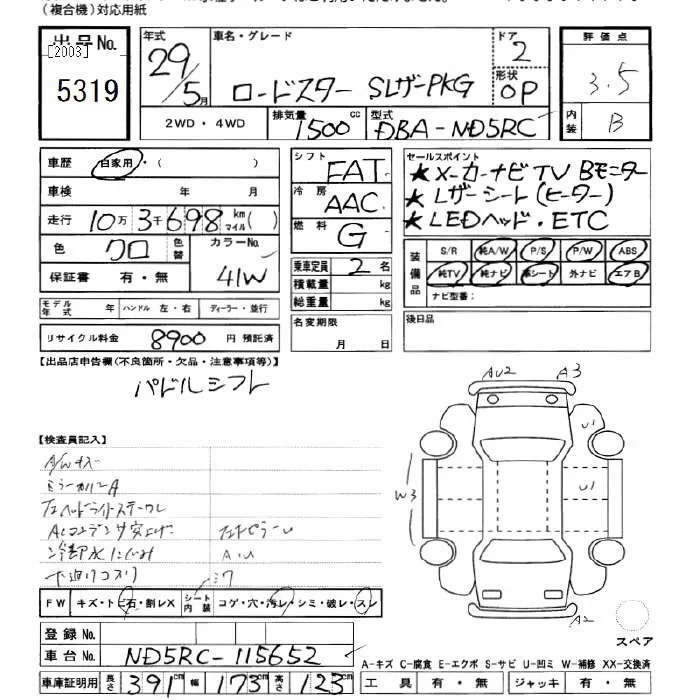 (複合機)対応用紙
出品No.
[2003]
5319
年式 29/5月
車名・グレード ロードスター SレザーPKG
ドア 2
形状 OP
2WD・4WD
排気量 1500cc
型式 DBA-ND5RC
評価点 3.5
内装 B
車歴 自家用・( )
車検 年 月
走行 10万3千698 km マイル( )
色 クロ 色替 カラーNo. 41W
保証書 有・無
モデル年式 年 ハンドル 左・右 ディーラー・並行
リサイクル料金 8900円 預託済
シフト FAT
冷房 AAC
燃料 G
乗車定員 2名
積載量 kg
総重量 kg
名変期限 月 日
セールスポイント
★メーカーナビTV Bモニター
★レザーシート(ヒーター)
★LEDヘッド・ETC
装備品 S/R 純A/W P/S P/W ABS
純TV 純ナビ 革シート 外ナビ エアB
ナビ型番:
後日品
【出品店申告欄(不良箇所・欠品・注意事項等)】
パドルシフト
【検査員記入】
A/Wキズ
ミラーカバーA
下廻りコスリ
AU2 A3
U1
W3
U1
A2
スペア
FW キズ・トビ石・割レX シート内装 コゲ・穴・汚レ・シミ・破レ・スレ
登録No.
車台No. ND5RC-115652
車庫証明用 長さ 391cm 幅 173cm 高さ 123cm
A-キズ C-腐食 E-エクボ S-サビ U-凹ミ W-補修 XX-交換済
工具 有・無 ジャッキ 有・無